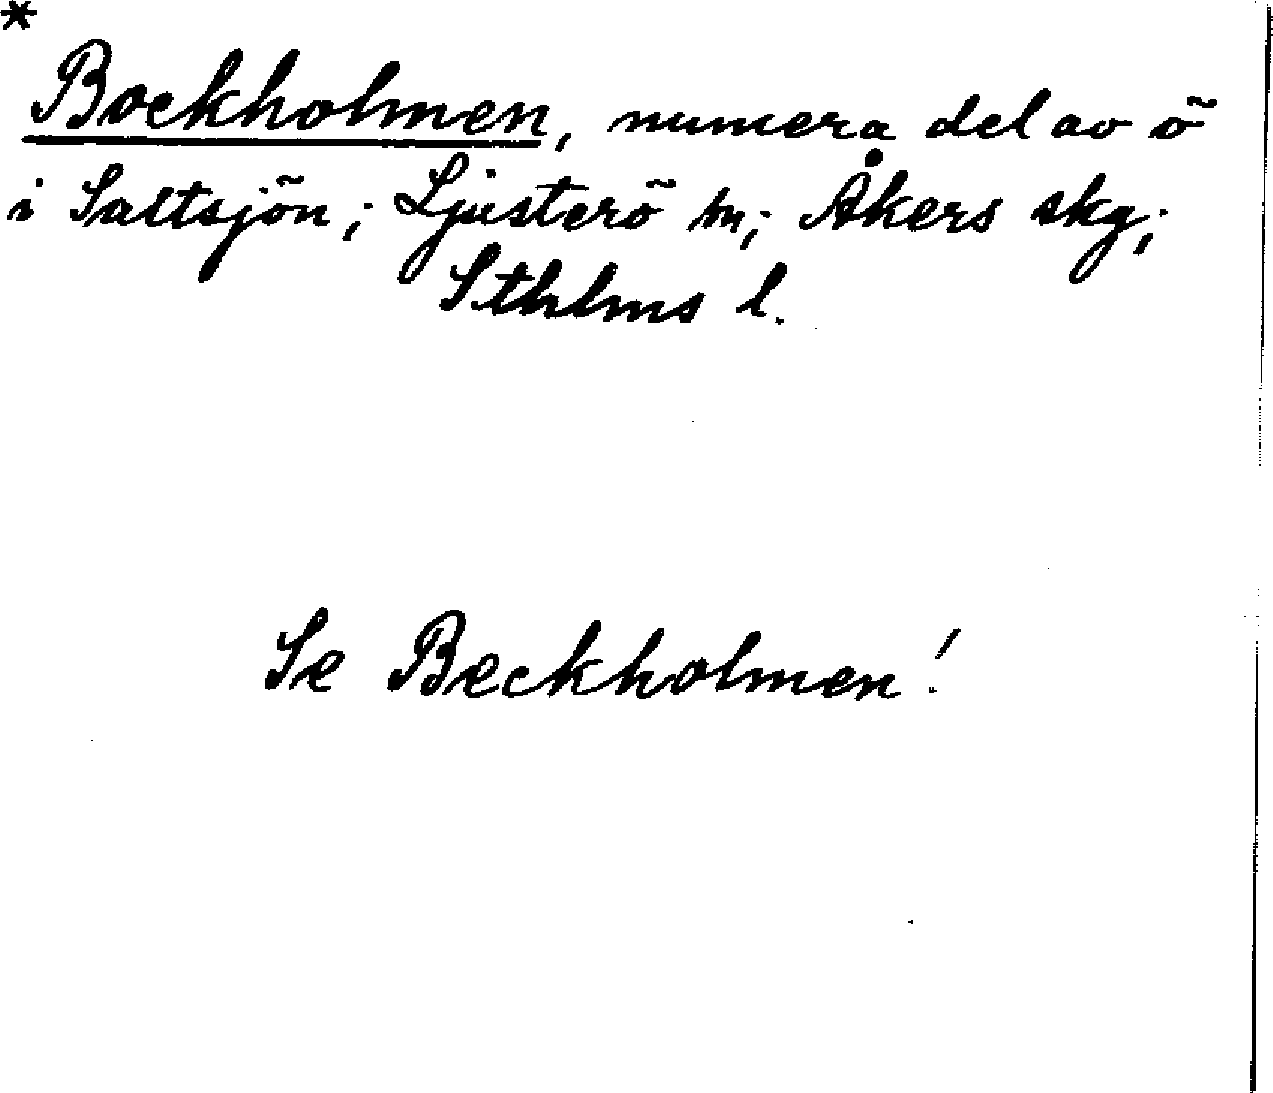 *
Bockholmen, numera del av ö
i Saltsjön; Ljusterö sn; Åkers skg;
Sthlms l.
Se Beckholmen!